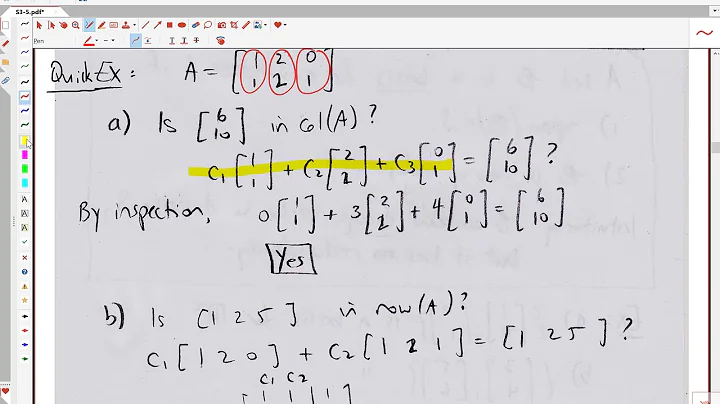 S3-5.pdf*
Pen
QuikEx: A = [1 2 0
1 2 1]
a) Is [6 10] in col(A)?
c1 [1 1] + c2 [2 2] + c3 [0 1] = [6 10] ?
By inspection, 0 [1 1] + 3 [2 2] + 4 [0 1] = [6 10]
Yes
b) Is [1 2 5] in row(A)?
c1 [1 2 0] + c2 [1 2 1] = [1 2 5] ?
c1 c2